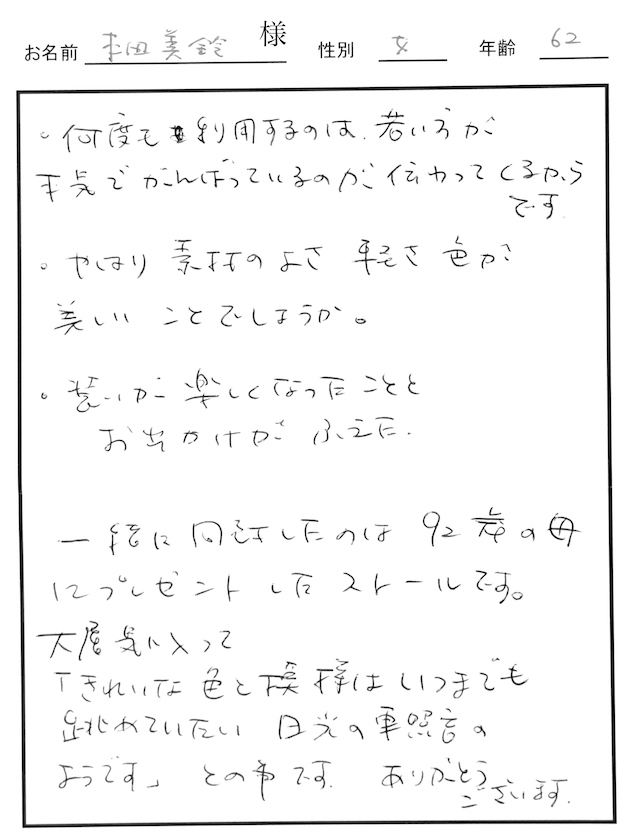 お名前 本田美鈴 様 性別 女 年齢 62
・何度も利用するのは、若い方が
本気でがんばっているのが伝わってくるから
です
・やはり 素材のよさ 軽さ 色が
美しい ことでしょうか。
・装いが楽しくなったことと
お出かけが ふえた.
一緒に同封したのは 92歳の母
にプレゼント した ストールです。
大層気に入って
「きれいな色と模様はいつまでも
眺めていたい 日光の東照宮の
ようです」 との事です. ありがとう
ございます.